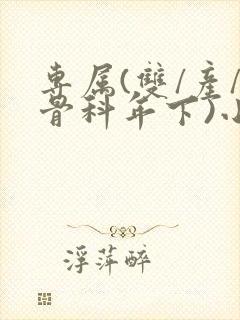 專属(雙/産/
骨科年下)小
浮萍醉